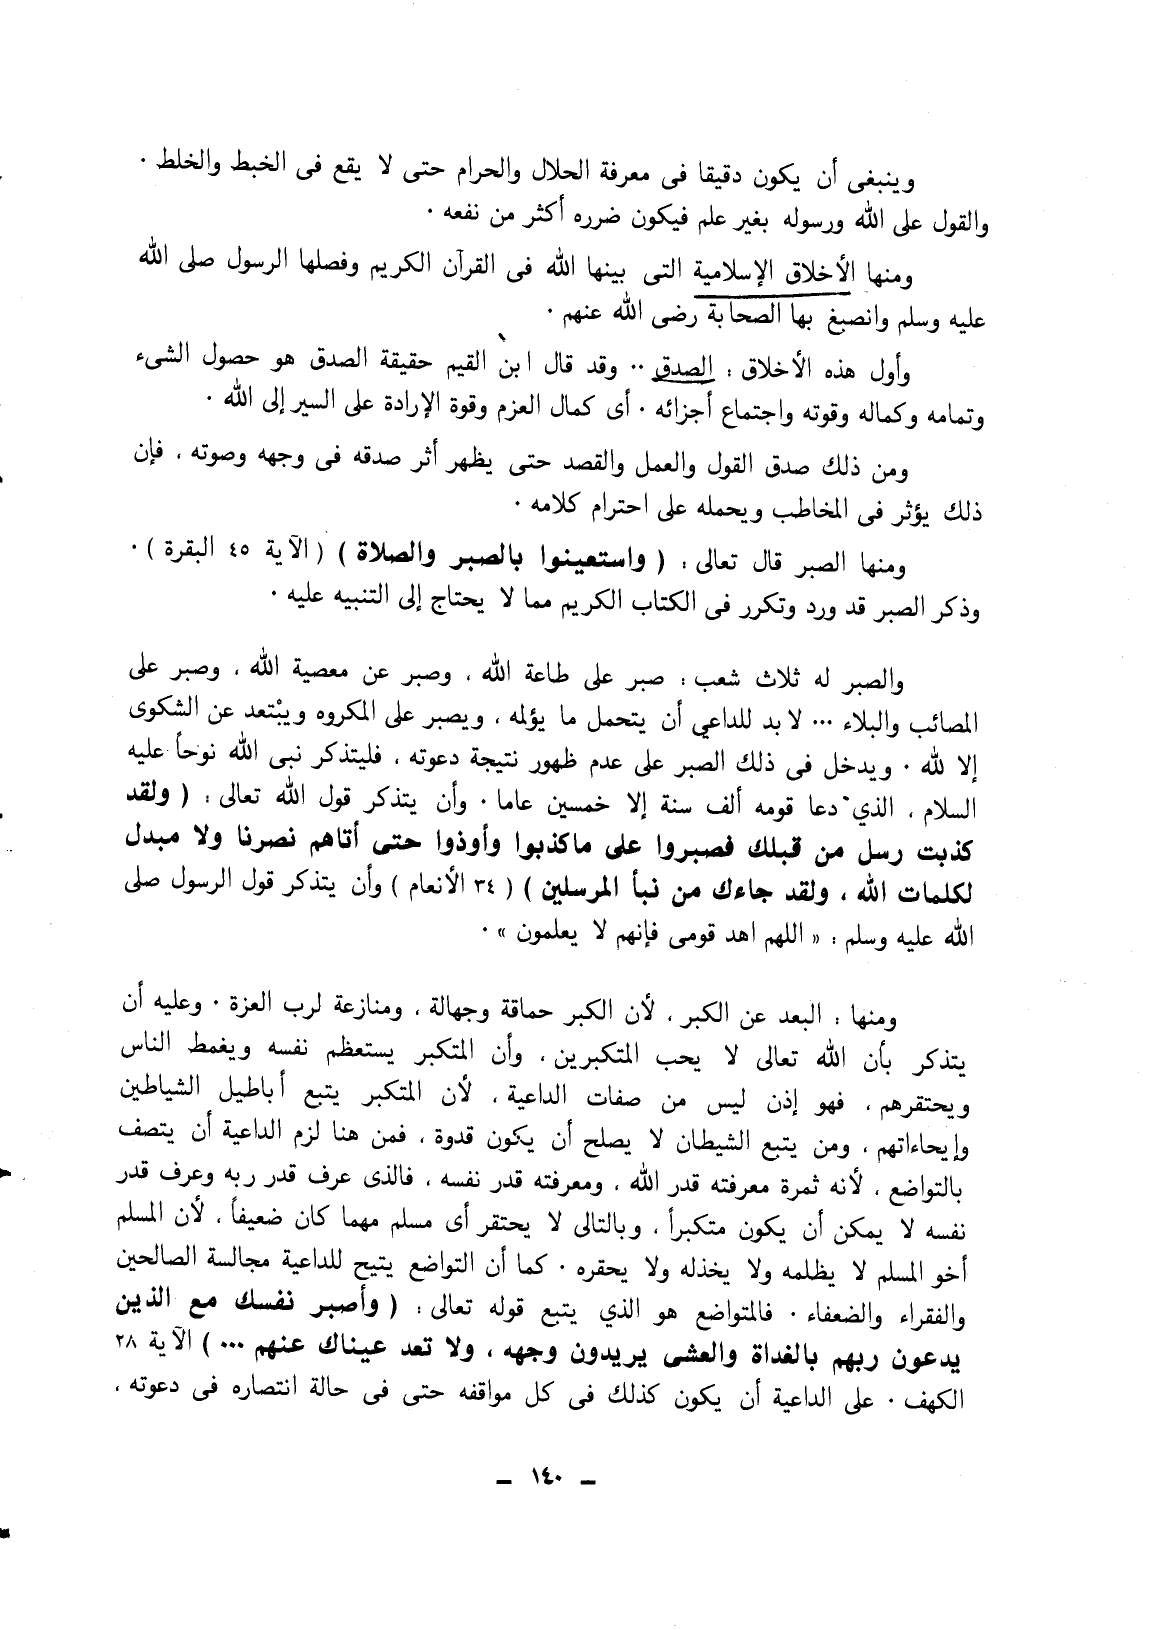 وينبغى أن يكون دقيقا فى معرفة الحلال والحرام حتى لا يقع فى الخبط والخلط .
والقول على الله ورسوله بغير علم فيكون ضرره أكثر من نفعه .
ومنها الأخلاق الإسلامية التى بينها الله فى القرآن الكريم وفصلها الرسول صلى الله
عليه وسلم وانصبغ بها الصحابة رضى الله عنهم .
وأول هذه الأخلاق : الصدق .. وقد قال ابن القيم حقيقة الصدق هو حصول الشىء
وتمامه وكماله وقوته واجتماع أجزائه . أى كمال العزم وقوة الإرادة على السير إلى الله .
ومن ذلك صدق القول والعمل والقصد حتى يظهر أثر صدقه فى وجهه وصوته ، فإن
ذلك يؤثر فى المخاطب ويحمله على احترام كلامه .
ومنها الصبر قال تعالى : ( واستعينوا بالصبر والصلاة ) ( الآية ٤٥ البقرة ) .
وذكر الصبر قد ورد وتكرر فى الكتاب الكريم مما لا يحتاج إلى التنبيه عليه .
والصبر له ثلاث شعب : صبر على طاعة الله ، وصبر عن معصية الله ، وصبر على
المصائب والبلاء ... لا بد للداعي أن يتحمل ما يؤلمه ، ويصبر على المكروه ويبْتعد عن الشكوى
إلا لله . ويدخل فى ذلك الصبر على عدم ظهور نتيجة دعوته ، فليتذكر نبى الله نوحاً عليه
السلام ، الذي دعا قومه ألف سنة إلا خمسين عاما . وأن يتذكر قول الله تعالى : ( ولقد
كذبت رسل من قبلك فصبروا على ماكذبوا وأوذوا حتى أتاهم نصرنا ولا مبدل
لكلمات الله ، ولقد جاءك من نبأ المرسلين ) ( ٣٤ الأنعام ) وأن يتذكر قول الرسول صلى
الله عليه وسلم : « اللهم اهد قومى فإنهم لا يعلمون » .
ومنها : البعد عن الكبر ، لأن الكبر حماقة وجهالة ، ومنازعة لرب العزة . وعليه أن
يتذكر بأن الله تعالى لا يحب المتكبرين ، وأن المتكبر يستعظم نفسه ويغمط الناس
ويحتقرهم ، فهو إذن ليس من صفات الداعية ، لأن المتكبر يتبع أباطيل الشياطين
وإيحاءاتهم ، ومن يتبع الشيطان لا يصلح أن يكون قدوة ، فمن هنا لزم الداعية أن يتصف
بالتواضع ، لأنه ثمرة معرفته قدر الله ، ومعرفته قدر نفسه ، فالذى عرف قدر ربه وعرف قدر
نفسه لا يمكن أن يكون متكبراً ، وبالتالى لا يحتقر أى مسلم مهما كان ضعيفاً ، لأن المسلم
أخو المسلم لا يظلمه ولا يخذله ولا يحقره . كما أن التواضع يتيح للداعية مجالسة الصالحين
والفقراء والضعفاء . فالمتواضع هو الذي يتبع قوله تعالى : ( وأصبر نفسك مع الذين
يدعون ربهم بالغداة والعشى يريدون وجهه ، ولا تعد عيناك عنهم ... ) الآية ٢٨
الكهف . على الداعية أن يكون كذلك فى كل مواقفه حتى فى حالة انتصاره فى دعوته ،
– ١٤٠ –